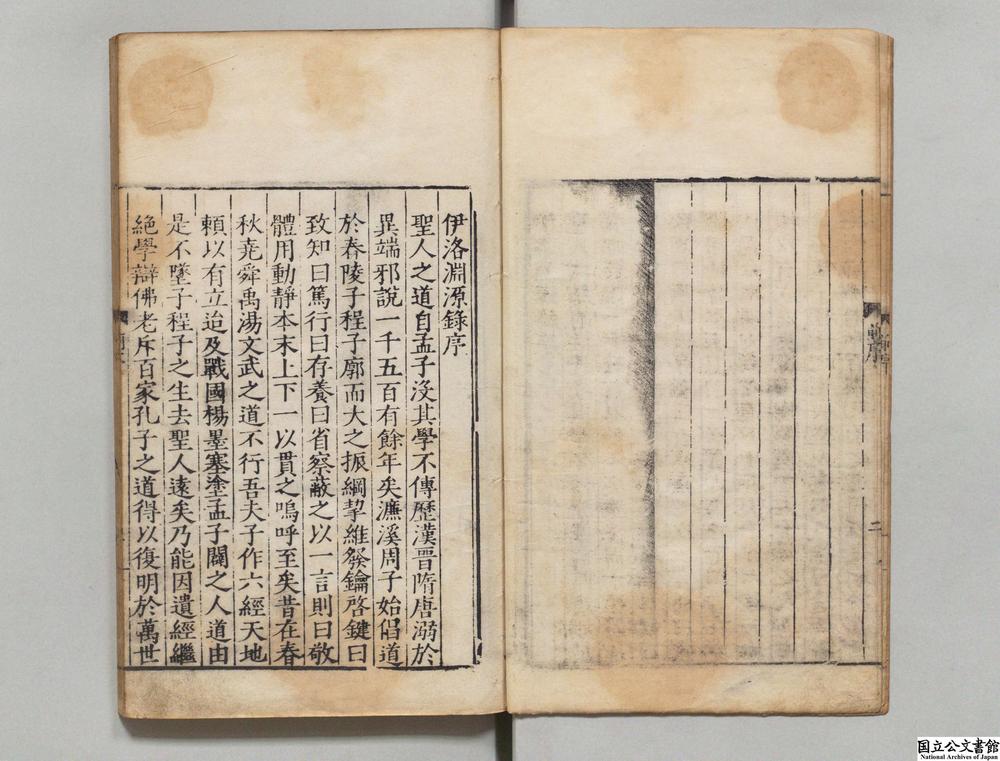 伊洛淵源錄序
聖人之道自孟子沒其學不傳歷漢晉隋唐溺於
異端邪說一千五百有餘年矣濂溪周子始倡道
於舂陵子程子廓而大之振綱挈維發鑰啓鍵曰
致知曰篤行曰存養曰省察蔽之以一言則曰敬
體用動靜本末上下一以貫之嗚呼至矣昔在春
秋堯舜禹湯文武之道不行吾夫子作六經天地
賴以有立迨及戰國楊墨塞塗孟子闢之人道由
是不墜子程子之生去聖人遠矣乃能因遺經繼
絕學辯佛老斥百家孔子之道得以復明於萬世
二
国立公文書館
National Archives of Japan